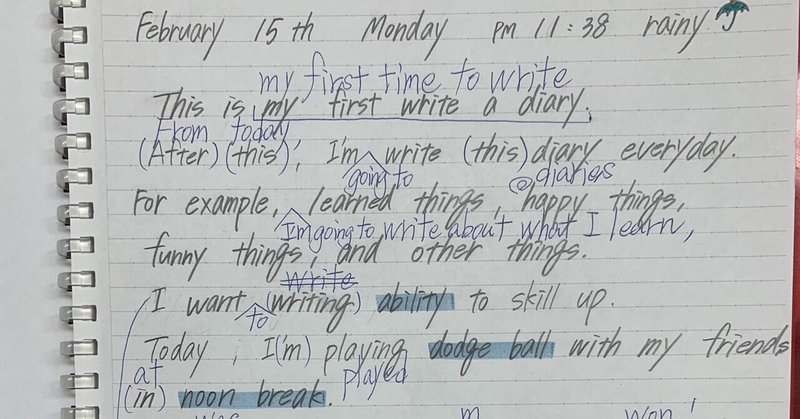 February 15th Monday PM 11:38 rainy
my first time to write
This is my first write a diary.
From today
(After) (this), I'm write (this) diary everyday.
going to diaries
For example, learned things, happy things,
I'm going to write about what I learn,
funny things, and other things.
write
I want (writing) ability to skill up.
to
Today, I('m) playing dodge ball with my friends
at played
(in) noon break.